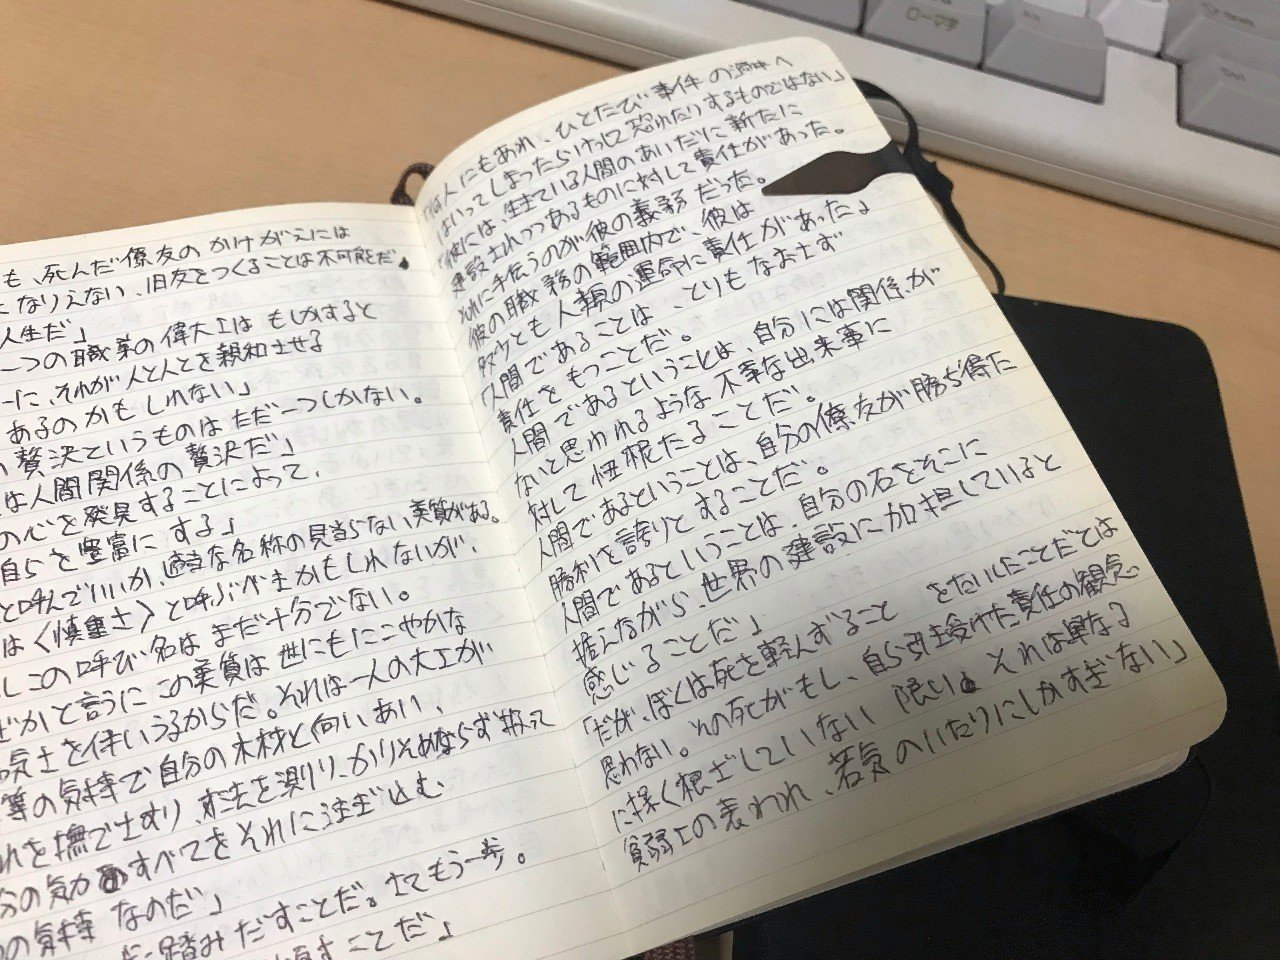 も、死んだ僚友のかけがえには
なりえない、旧友をつくることは不可能だ。
人生だ」
一つの職業の偉大さは もしかすると
に、それが人と人とを親和させる
あるのかもしれない」
贅沢というものはただ一つしかない。
は人間関係の贅沢だ」
の心を発見することによって、
自らを豊富にする」
と呼んでいいか、適当な名称の見当らない美質がある。
は〈慎重さ〉と呼ぶべきかもしれないが、
しこの呼び名はまだ十分でない。
ぜかと言うにこの美質は世にもにこやかな
気さを伴いうるからだ。それは一人の大工が
等の気持で自分の木材と向いあい、
れを撫でさすり、寸法を測り、かりそめならず扱って
分の気力のすべてをそれに注ぎ込む
の気持なのだ」
踏みだすことだ。さてもう一歩。
ことだ」
「何人にもあれ、ひとたび事件の渦中へ
はいってしまったらけっして恐れたりするものではない」
「彼には、生きている人間のあいだに新たに
建設されつつあるものに対して責任があった。
それに手伝うのが彼の義務だった。
彼の職務の範囲内で、彼は
多少とも人類の運命に責任があった」
「人間であることは、とりもなおさず
責任をもつことだ。
人間であるということは、自分には関係が
ないと思われるような不幸な出来事に
対して忸怩たることだ。
人間であるということは、自分の僚友が勝ち得た
勝利を誇りとすることだ。
人間であるということは、自分の石をそこに
据えながら、世界の建設に加担していると
感じることだ」
「だが、ぼくは死を軽んずること をたいしたことだとは
思わない。その死がもし、自ら引き受けた責任の観念
に深く根ざしていない 限り、それは単なる
貧弱さの表われ、若気のいたりにしかすぎない」
ローマ字